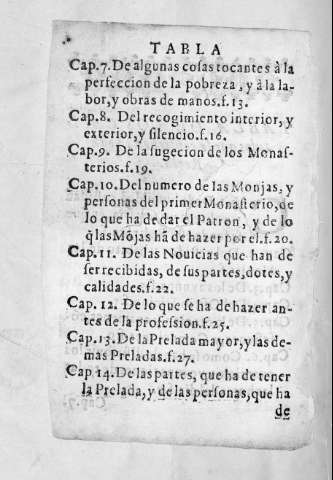 TABLA
Cap.7. De algunas cosas tocantes à la
perfeccion de la pobreza, y à la la-
bor, y obras de manos. f. 13.
Cap.8. Del recogimiento interior, y
exterior, y silencio. f. 16.
Cap.9. De la sugecion de los Monas-
terios. f. 19.
Cap.10. Del numero de las Monjas, y
personas del primer Monasterio, de
lo que ha de dar el Patron, y de lo
q̃ las Mõjas hã de hazer por el. f. 20.
Cap.11. De las Nouicias que han de
ser recibidas, de sus partes, dotes, y
calidades. f. 22.
Cap. 12. De lo que se ha de hazer an-
tes de la profession. f. 25.
Cap.13. De la Prelada mayor, y las de-
mas Preladas. f. 27.
Cap 14. De las partes, que ha de tener
la Prelada, y de las personas, que ha
de